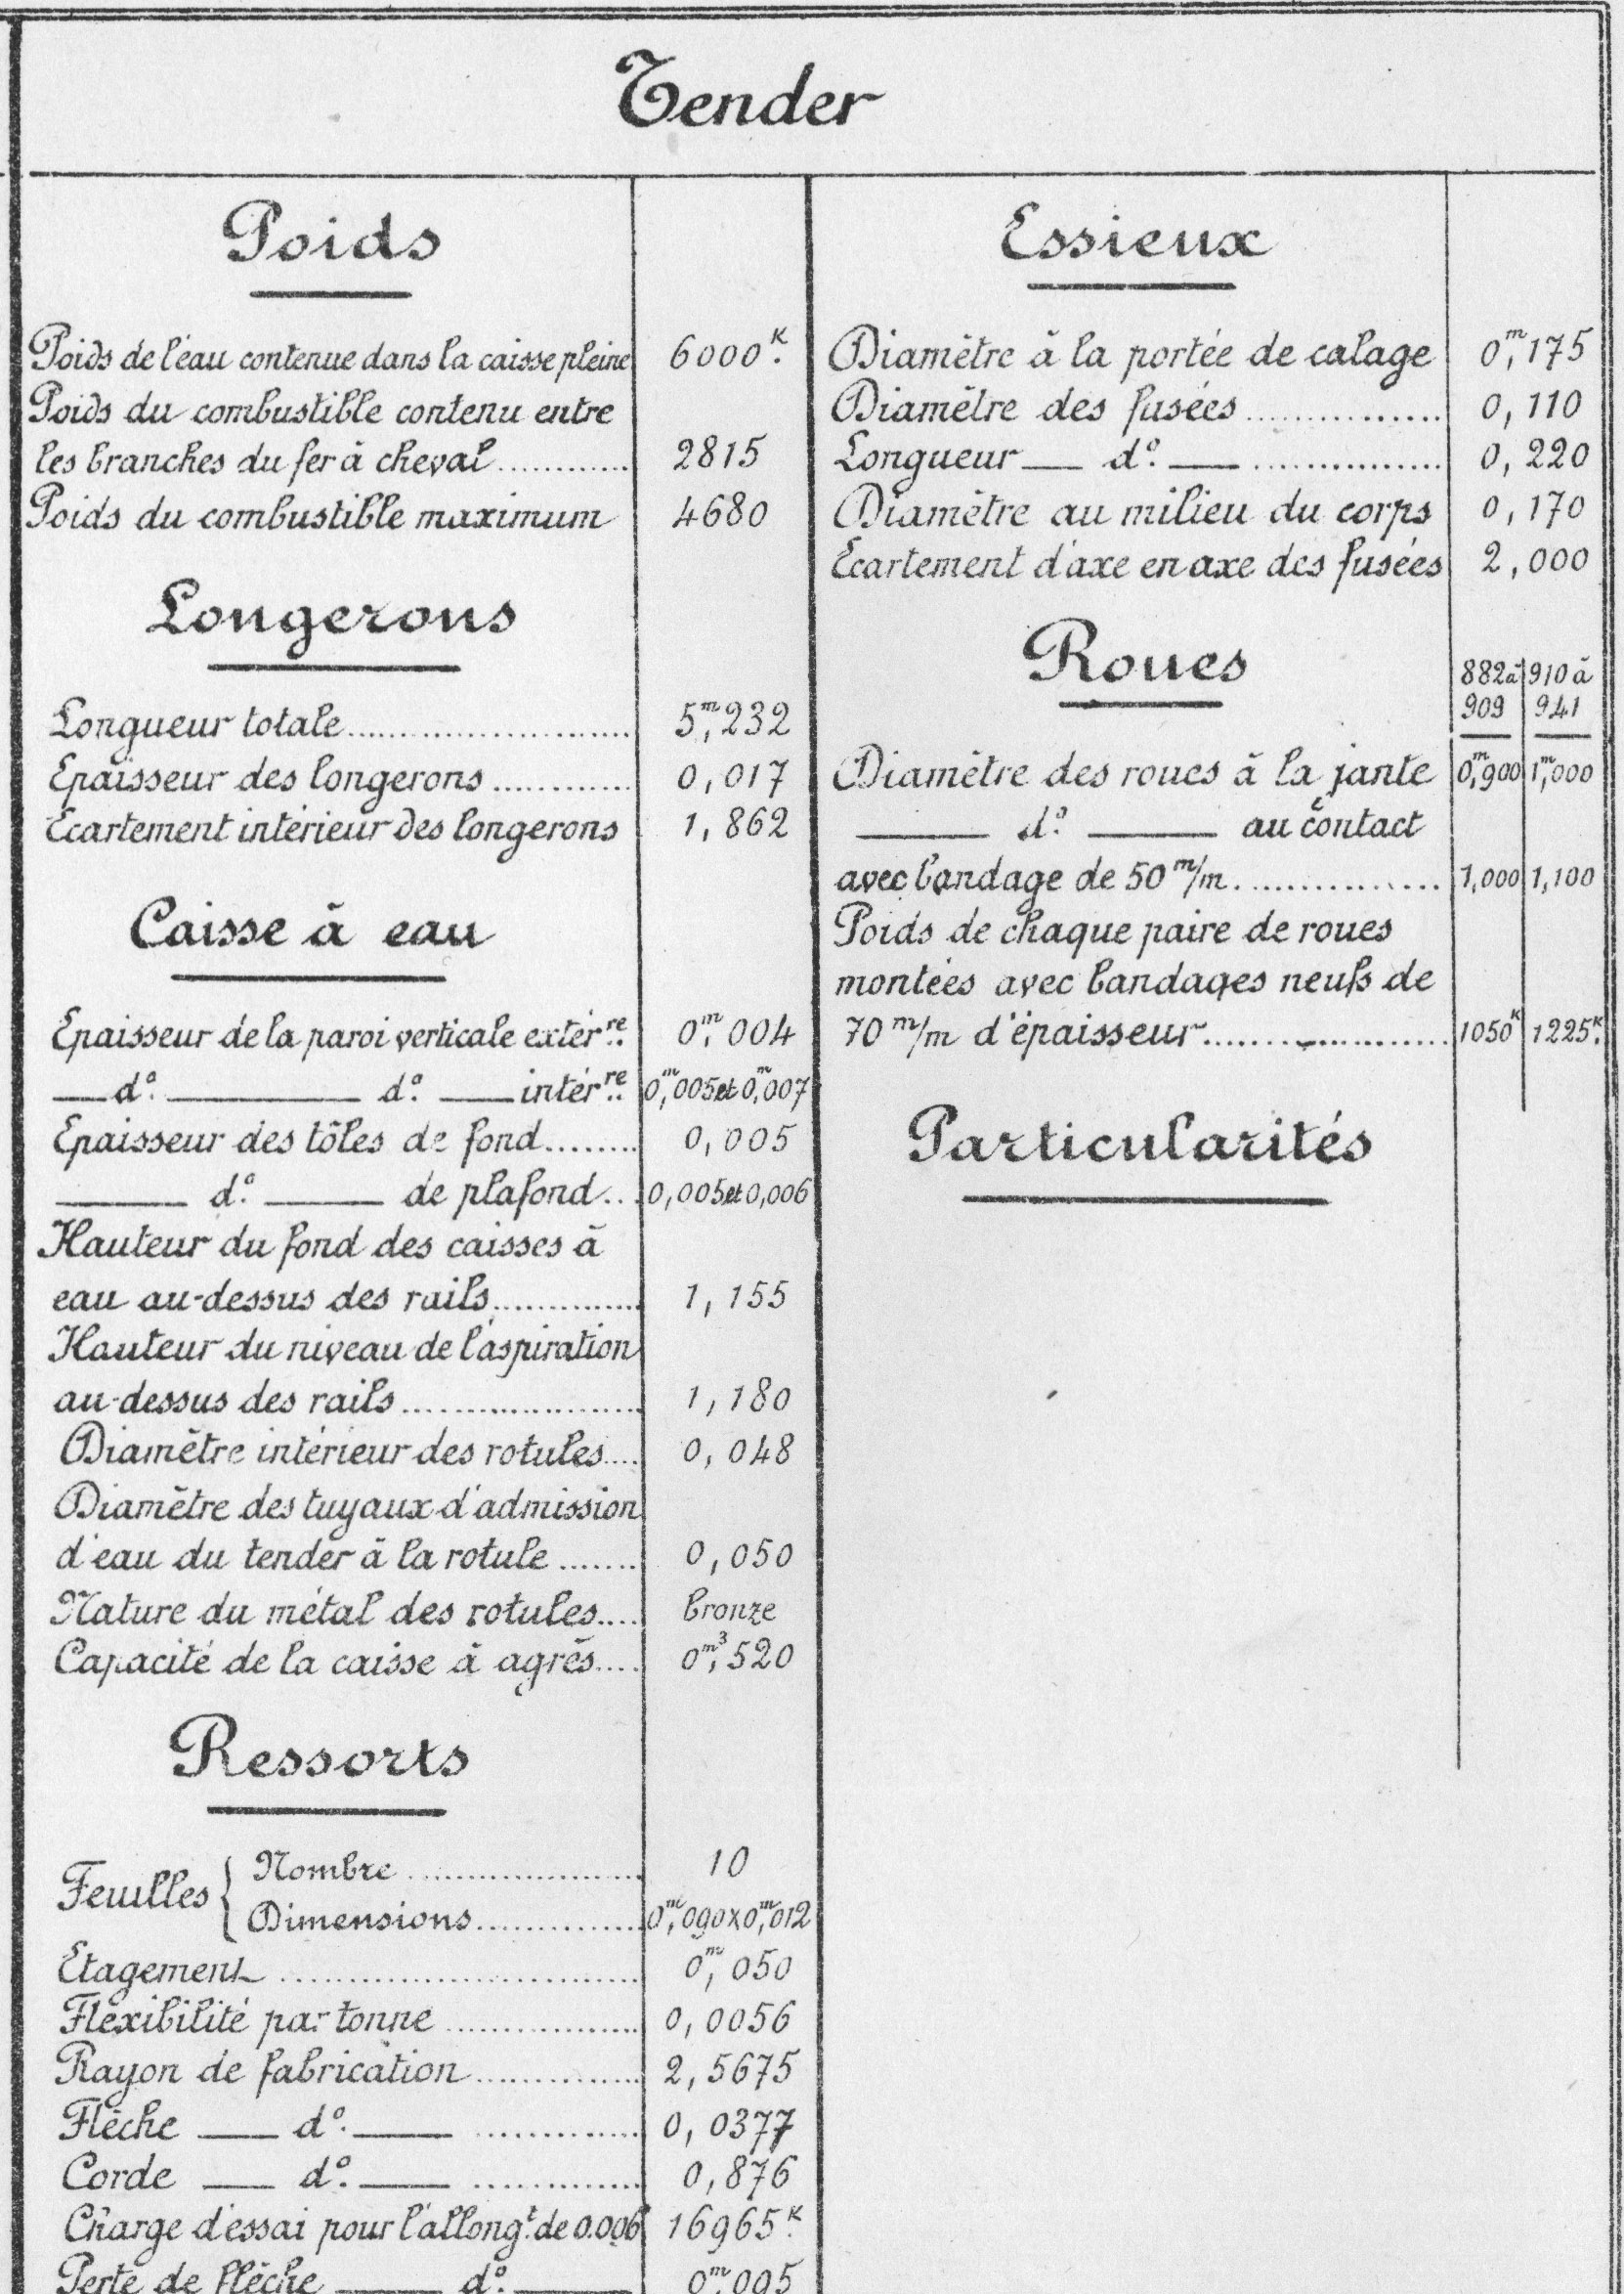 Tender
Poids
Poids de l'eau contenue dans la caisse pleine 6000ᴷ.
Poids du combustible contenu entre
les branches du fer à cheval ............ 2815
Poids du combustible maximum 4680
Longerons
Longueur totale ........................ 5ᵐ,232
Epaisseur des longerons ............ 0,017
Ecartement intérieur des longerons 1,862
Caisse à eau
Epaisseur de la paroi verticale extérʳᵉ.. 0ᵐ.004
— dº. — dº. — intérʳᵉ.. 0ᵐ,005 et 0ᵐ,007
Epaisseur des tôles de fond ........ 0,005
— dº. — de plafond ... 0,005 et 0,006
Hauteur du fond des caisses à
eau au-dessus des rails .............. 1,155
Hauteur du niveau de l'aspiration
au-dessus des rails ..................... 1,180
Diamètre intérieur des rotules .... 0,048
Diamètre des tuyaux d'admission
d'eau du tender à la rotule ....... 0,050
Nature du métal des rotules .... bronze
Capacité de la caisse à agrès .... 0ᵐ³,520
Ressorts
Feuilles { Nombre ..................... 10
Dimensions ............... 0ᵐ,090 x 0ᵐ,012
Etagement ............................. 0ᵐ,050
Flexibilité par tonne ................. 0,0056
Rayon de fabrication ............... 2,5675
Flèche — dº. — ............... 0,0377
Corde — dº. — ............... 0,876
Charge d'essai pour l'allongᵗ. de 0.006 16965ᴷ.
Perte de flèche — dº. — 0ᵐ,095
Essieux
Diamètre à la portée de calage 0ᵐ,175
Diamètre des fusées ............... 0,110
Longueur — dº. — ............... 0,220
Diamètre au milieu du corps 0,170
Ecartement d'axe en axe des fusées 2,000
Roues
882 à 910 à
909 941
Diamètre des roues à la jante 0ᵐ,900 1ᵐ,000
— dº. — au contact
avec bandage de 50 ᵐ/m ............... 1,000 1,100
Poids de chaque paire de roues
montées avec bandages neufs de
70 ᵐ/m d'épaisseur ..................... 1050ᴷ 1225ᴷ.
Particularités